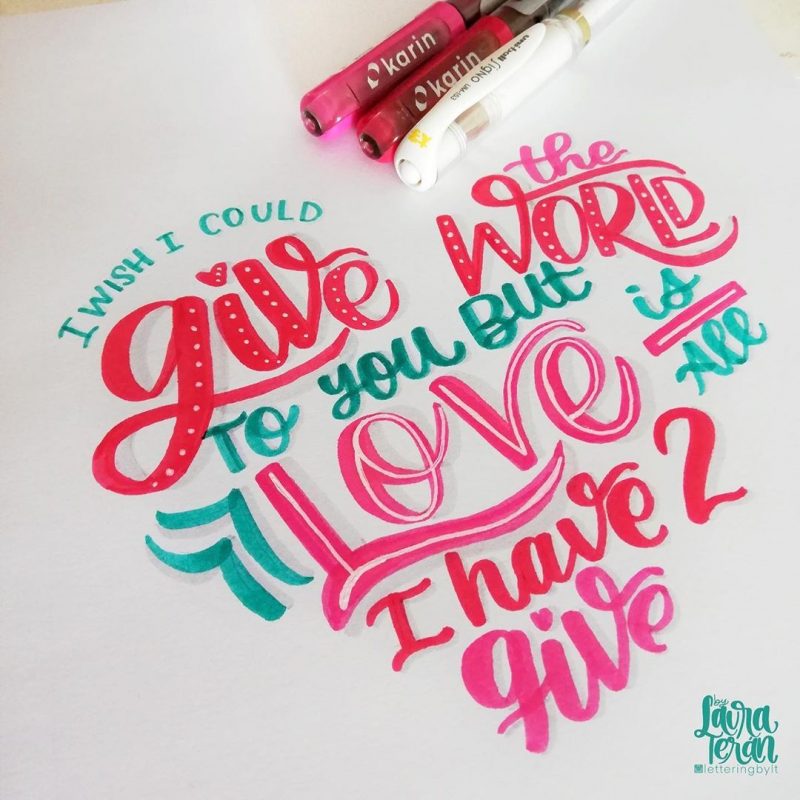 karin
karin
uni-ball SIGNO UM-153
I WISH I COULD
give the WORLD
TO YOU BUT
LOVE is All
I have 2
give
by
Laura
Terán
@letteringbylt